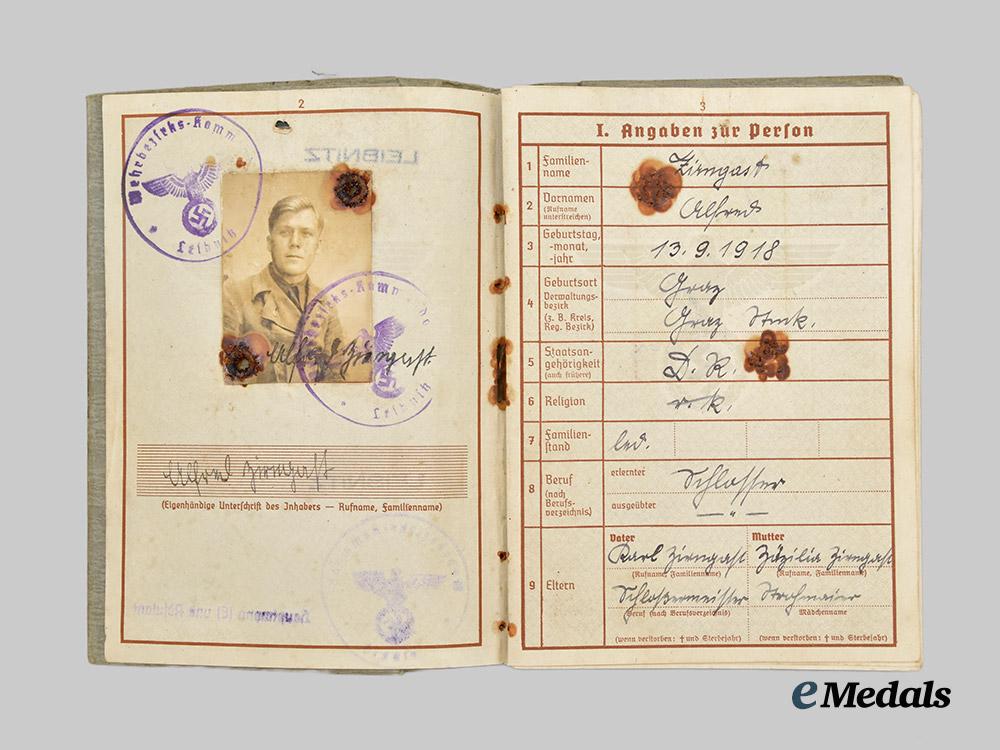 2
Wehrbezirks-Komm
Leibnitz
LEIBNITZ
Leibnitz
Alfred Zirngast
Alfred Zirngast
(Eigenhändige Unterschrift des Inhabers — Rufname, Familienname)
Hauptmann (E) und Adjutant
3
I. Angaben zur Person
1 Familien-
name
Zirngast
2 Vornamen
(Rufname
unterstreichen)
Alfred
3 Geburtstag,
-monat,
-jahr
13.9.1918
4 Geburtsort
Verwaltungs-
bezirk
(z. B. Kreis,
Reg. Bezirk)
Graz
Graz Stmk.
5 Staatsan-
gehörigkeit
(auch frühere)
D. R.
6 Religion
r. k.
7 Familien-
stand
led.
8 Beruf
(nach
Berufs-
verzeichnis)
erlernter
Schlosser
ausgeübter
— " —
9 Eltern
Vater
Karl Zirngast
(Rufname, Familienname)
Schlossermeister
Beruf (nach Berufsverzeichnis)
(wenn verstorben: † und Sterbejahr)
Mutter
Zäzilia Zirngast
(Rufname, Familienname)
Strohmaier
Mädchenname
(wenn verstorben: † und Sterbejahr)
eMedals